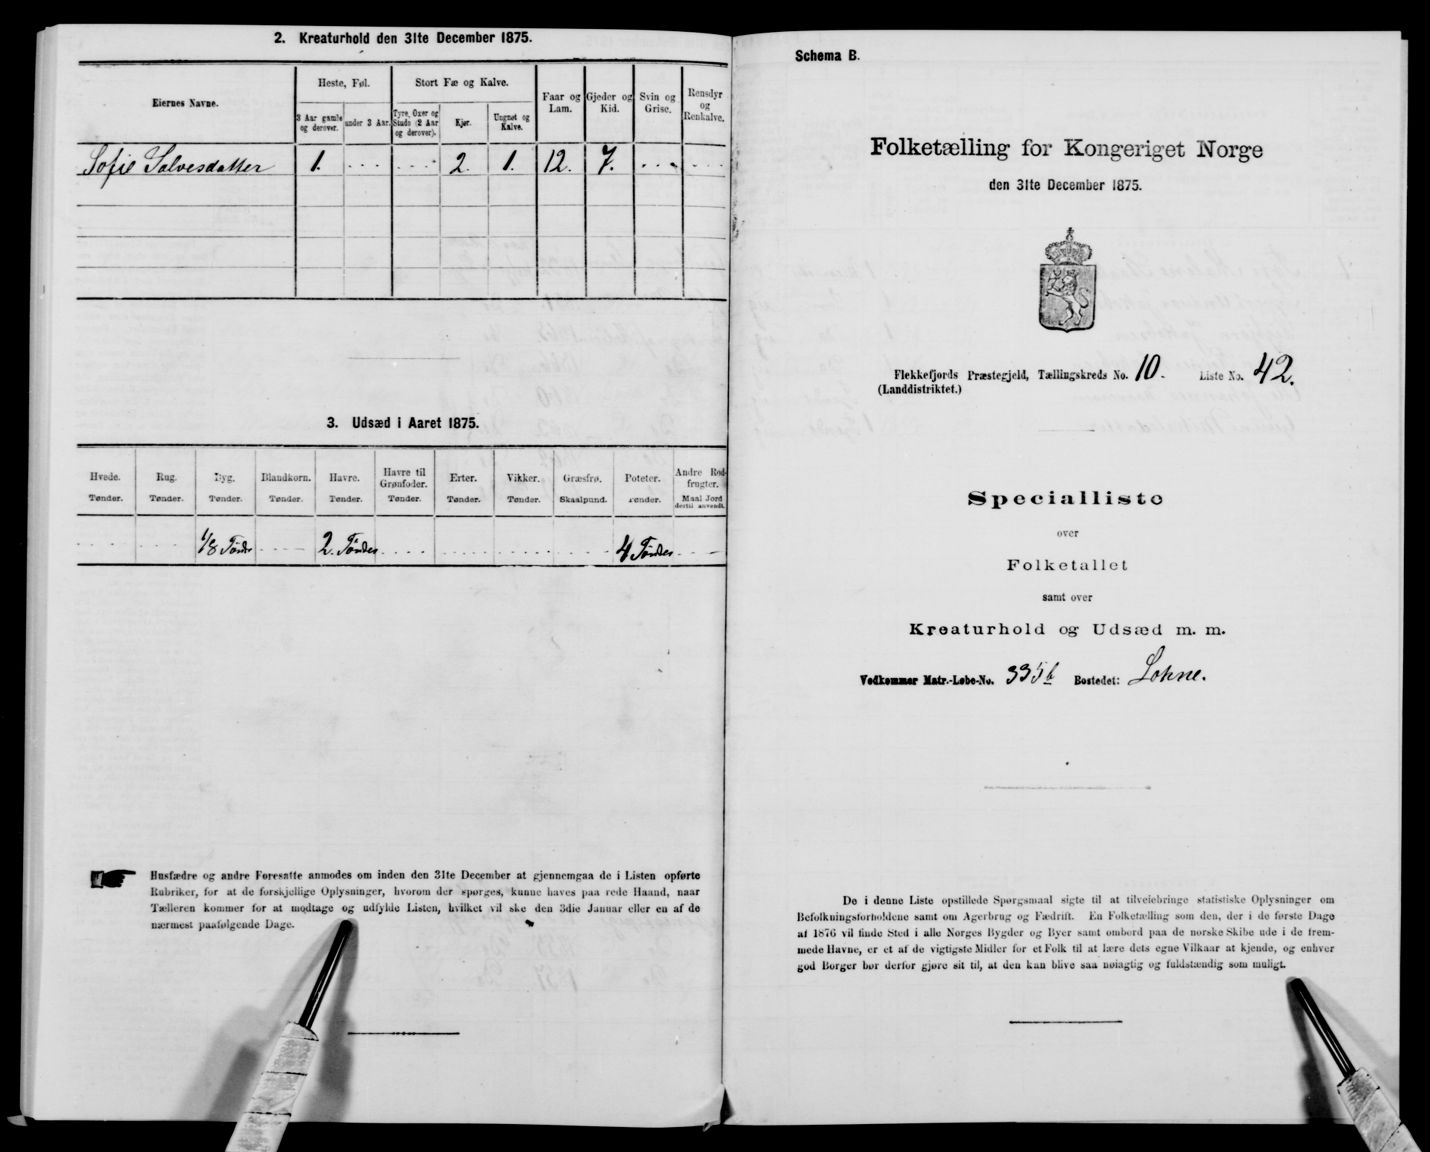 2. Kreaturhold den 31te December 1875.
Eiernes Navne.
Heste, Føl.
Stort Fæ og Kalve.
Faar og Lam.
Gjeder og Kid.
Svin og Grise.
Rensdyr og Renkalve.
3 Aar gamle og derover.
under 3 Aar.
Tyre, Oxer og Stude (2 Aar og derover).
Kjør.
Ungnøt og Kalve.
Sofie Salvesdatter 1. 2. 1. 12. 7.
3. Udsæd i Aaret 1875.
Hvede. Rug. Byg. Blandkorn. Havre. Havre til Grønfoder. Erter. Vikker. Græsfrø. Poteter. Andre Rodfrugter.
Tønder. Tønder. Tønder. Tønder. Tønder. Tønder. Tønder. Tønder. Skaalpund. Tønder. Maal Jord dertil anvendt.
1/8 Tønde 2 Tønder 4 Tønder
Husfædre og andre Foresatte anmodes om inden den 31te December at gjennemgaa de i Listen opførte
Rubriker, for at de forskjellige Oplysninger, hvorom der spørges, kunne haves paa rede Haand, naar
Tælleren kommer for at modtage og udfylde Listen, hvilket vil ske den 3die Januar eller en af de
nærmest paafølgende Dage.
Schema B.
Folketælling for Kongeriget Norge
den 31te December 1875.
Flekkefjords Præstegjeld, Tællingskreds No. 10. Liste No. 42.
(Landdistriktet.)
Specialliste
over
Folketallet
samt over
Kreaturhold og Udsæd m. m.
Vedkommer Matr.-Løbe-No. 335b Bostedet: Lohne.
De i denne Liste opstillede Spørgsmaal sigte til at tilveiebringe statistiske Oplysninger om
Befolkningsforholdene samt om Agerbrug og Fædrift. En Folketælling som den, der i de første Dage
af 1876 vil finde Sted i alle Norges Bygder og Byer samt ombord paa de norske Skibe ude i de frem-
mede Havne, er et af de vigtigste Midler for et Folk til at lære dets egne Vilkaar at kjende, og enhver
god Borger bør derfor gjøre sit til, at den kan blive saa nøiagtig og fuldstændig som muligt.